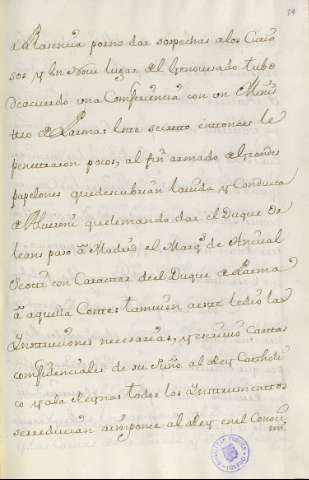 a Plasencia por no dar sospechas a los Curio
sos, y en Novi lugar del Genovesado tubo
de acuerdo una Conferencia con un Minis
tro de Parma: Este secreto entonces le
penetraron pocos, al fin armado de grandes
papelones que descubrian la vida, y Conducta
de Alveroni que le mando dar el Duque de
leans paso a Madrid el Marqs. de Anival
Scoti con Caracter de el Duque de Parma
a aquella Corte: tambien a este le dio las
Instruciones necesarias, y escrivio Cartas
confidenciales de su Puño al Rey Catholi
co y a la Reyna: todos los Instrumentos
se reducian a imponer al Rey en el Conoci
mi